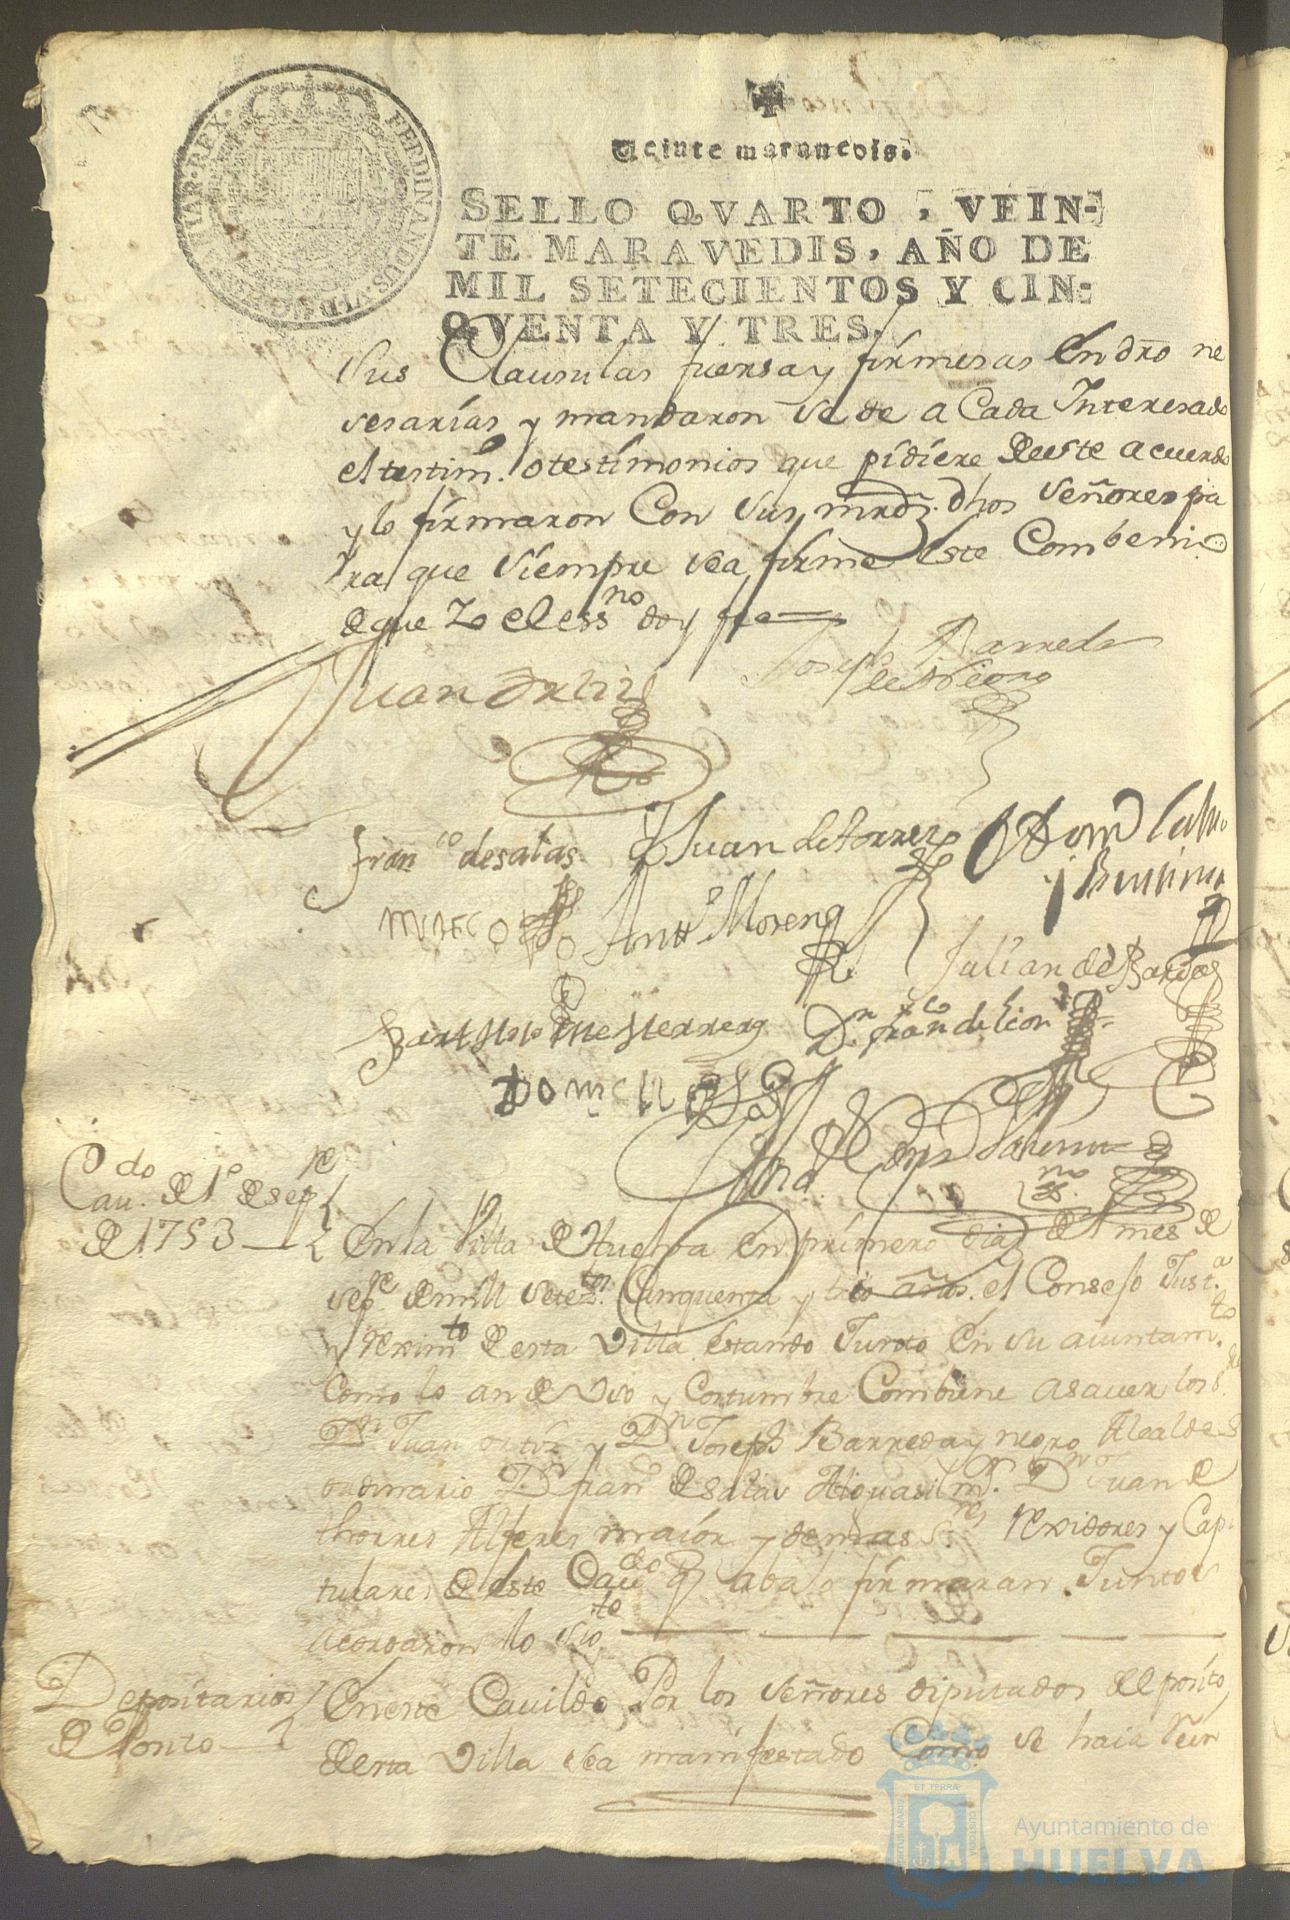 Veinte maravedis.
SELLO QVARTO, VEIN-
TE MARAVEDIS, AÑO DE
MIL SETECIENTOS Y CIN-
QVENTA Y TRES.
FERDINANDUS VI D G HISPANIAR REX
sus Clausulas fuersa y firmesas en dro ne
sesarias y mandaron se de a Cada Interesado
el testim.o o testimonios que pidiere de este acuerdo
y lo firmaron Con sus mrds. dhos señores pa
ra que siempre sea firme este Combenio
de que Yo el essno doy fee
Juan Ortiz
Joseph Barreda
y Negro
Franco de salas
Juan de torres
Antto Moreno
Julian de
Barttolome Herrera
Dn franco de leon
Cavdo de 1o de sepre
de 1753
En la Villa de Huelva en primero dia del mes de
sepre de mill setezos Cinquenta y tres años el Consejo Justa
y reximto de esta Villa estando Junto en su aiuntamto
Como lo an de Uso y Costumbre Combiene a saver los Sres
Dn Juan ortiz y Dn Joseph Barreda y negro Alcaldes
ordinario Dn franco de salas Alguasil mr Dn Juan de
thorres Alferes maior y demas Sres rexidores y Capi
tulares de este Cavdo q abajo firmaran Juntos
acordaron lo sigte
Depositarios
de Posito
En este Cavildo Por los señores diputados del posito
de esta Villa sea manifestado Como se haia
ET TERRÆ
PORTUS MARIS
CUSTODIA
Ayuntamiento de
HUELVA